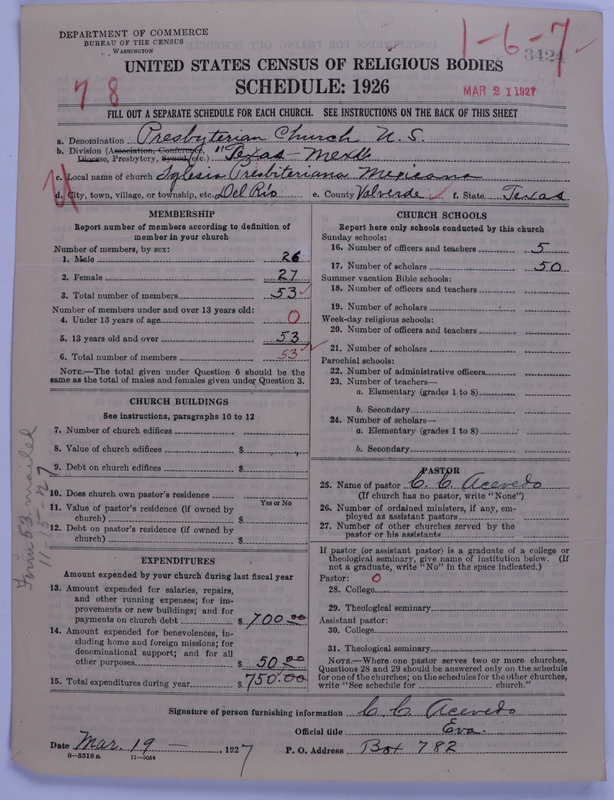 DEPARTMENT OF COMMERCE
BUREAU OF THE CENSUS
WASHINGTON
1-6-7
3424
UNITED STATES CENSUS OF RELIGIOUS BODIES
SCHEDULE: 1926
MAR 21 1927
7 8
FILL OUT A SEPARATE SCHEDULE FOR EACH CHURCH. SEE INSTRUCTIONS ON THE BACK OF THIS SHEET
a. Denomination Presbyterian Church U. S.
b. Division (Association, Conference, Diocese, Presbytery, Synod, etc.) "Texas-Mex"
c. Local name of church Iglesia Presbiteriana Mexicana
d. City, town, village, or township, etc. Del Rio e. County Valverde f. State Texas
MEMBERSHIP
Report number of members according to definition of
member in your church
Number of members, by sex:
1. Male 26
2. Female 27
3. Total number of members 53
Number of members under and over 13 years old:
4. Under 13 years of age 0
5. 13 years old and over 53
6. Total number of members 53
NOTE.—The total given under Question 6 should be
the same as the total of males and females given under Question 3.
CHURCH BUILDINGS
See instructions, paragraphs 10 to 12
7. Number of church edifices
8. Value of church edifices $
9. Debt on church edifices $
10. Does church own pastor's residence
Yes or No
11. Value of pastor's residence (if owned by
church) $
12. Debt on pastor's residence (if owned by
church) $
EXPENDITURES
Amount expended by your church during last fiscal year
13. Amount expended for salaries, repairs,
and other running expenses; for im-
provements or new buildings; and for
payments on church debt $700.00
14. Amount expended for benevolences, in-
cluding home and foreign missions; for
denominational support; and for all
other purposes $50.00
15. Total expenditures during year $750.00
Form 53 mailed
CHURCH SCHOOLS
Report here only schools conducted by this church
Sunday schools:
16. Number of officers and teachers 5
17. Number of scholars 50
Summer vacation Bible schools:
18. Number of officers and teachers
19. Number of scholars
Week-day religious schools:
20. Number of officers and teachers
21. Number of scholars
Parochial schools:
22. Number of administrative officers
23. Number of teachers—
a. Elementary (grades 1 to 8)
b. Secondary
24. Number of scholars—
a. Elementary (grades 1 to 8)
b. Secondary
PASTOR
25. Name of pastor C. C. Acevedo
(If church has no pastor, write "None")
26. Number of ordained ministers, if any, em-
ployed as assistant pastors
27. Number of other churches served by the
pastor or his assistants
If pastor (or assistant pastor) is a graduate of a college or
theological seminary, give name of institution below. (If
not a graduate, write "No" in the space indicated.)
Pastor: 0
28. College
29. Theological seminary
Assistant pastor:
30. College
31. Theological seminary
NOTE.—Where one pastor serves two or more churches,
Questions 28 and 29 should be answered only on the schedule
for one of the churches; on the schedules for the other churches,
write "See schedule for church."
Signature of person furnishing information C. C. Acevedo
Official title Eva.
Date Mar. 19 —, 1927 P. O. Address Box 782
8-5518a 11-9054